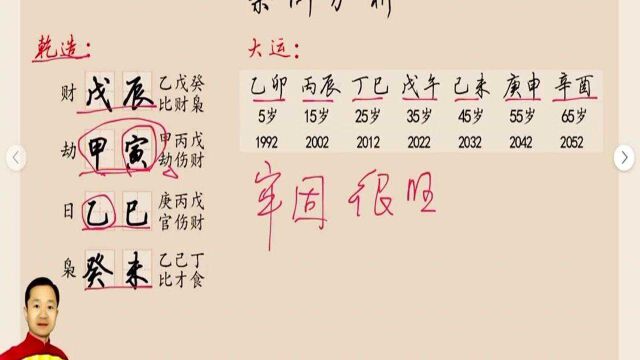 案例分析
乾造：
财 戊辰 乙戊癸
比财枭
劫 甲寅 甲丙戊
劫伤财
日 乙巳 庚丙戊
官伤财
枭 癸未 乙己丁
比才食
大运：
乙卯 丙辰 丁巳 戊午 己未 庚申 辛酉
5岁 15岁 25岁 35岁 45岁 55岁 65岁
1992 2002 2012 2022 2032 2042 2052
牢固 很旺